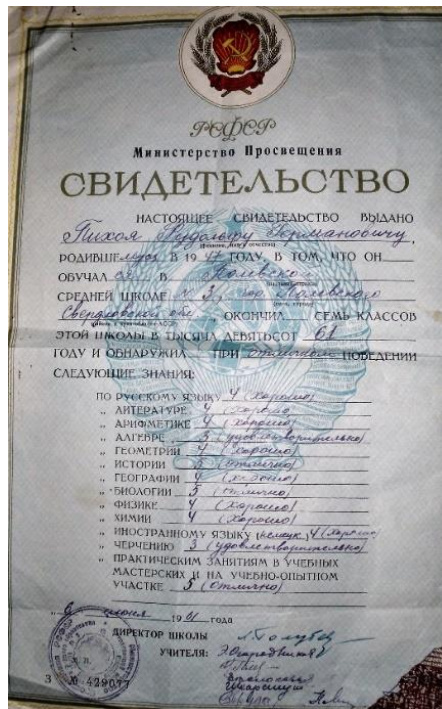 РСФСР
Министерство Просвещения
СВИДЕТЕЛЬСТВО
НАСТОЯЩЕЕ СВИДЕТЕЛЬСТВО ВЫДАНО
Пихоя Рудольфу Германовичу,
РОДИВШЕмуся В 1947 ГОДУ, В ТОМ, ЧТО ОН
ОБУЧАЛся В Полевской
СРЕДНЕЙ ШКОЛЕ № 3, гор. Полевского
Свердловской обл ОКОНЧИЛ СЕМЬ КЛАССОВ
ЭТОЙ ШКОЛЫ В ТЫСЯЧА ДЕВЯТЬСОТ 61
ГОДУ И ОБНАРУЖИЛ ПРИ отличном ПОВЕДЕНИИ
СЛЕДУЮЩИЕ ЗНАНИЯ:
ПО РУССКОМУ ЯЗЫКУ 4 (хорошо)
„ ЛИТЕРАТУРЕ 4 (хорошо)
„ АРИФМЕТИКЕ 4 (хорошо)
„ АЛГЕБРЕ 3 (удовлетворительно)
„ ГЕОМЕТРИИ 4 (хорошо)
„ ИСТОРИИ 5 (отлично)
„ ГЕОГРАФИИ 4 (хорошо)
„ БИОЛОГИИ 5 (отлично)
„ ФИЗИКЕ 4 (хорошо)
„ ХИМИИ 4 (хорошо)
„ ИНОСТРАННОМУ ЯЗЫКУ (немецк. 4 (хорошо)
„ ЧЕРЧЕНИЮ 3 (удовлетворительно)
„ ПРАКТИЧЕСКИМ ЗАНЯТИЯМ В УЧЕБНЫХ
МАСТЕРСКИХ И НА УЧЕБНО-ОПЫТНОМ
УЧАСТКЕ 5 (отлично)
июня 1961 года
ДИРЕКТОР ШКОЛЫ
УЧИТЕЛЯ:
З №